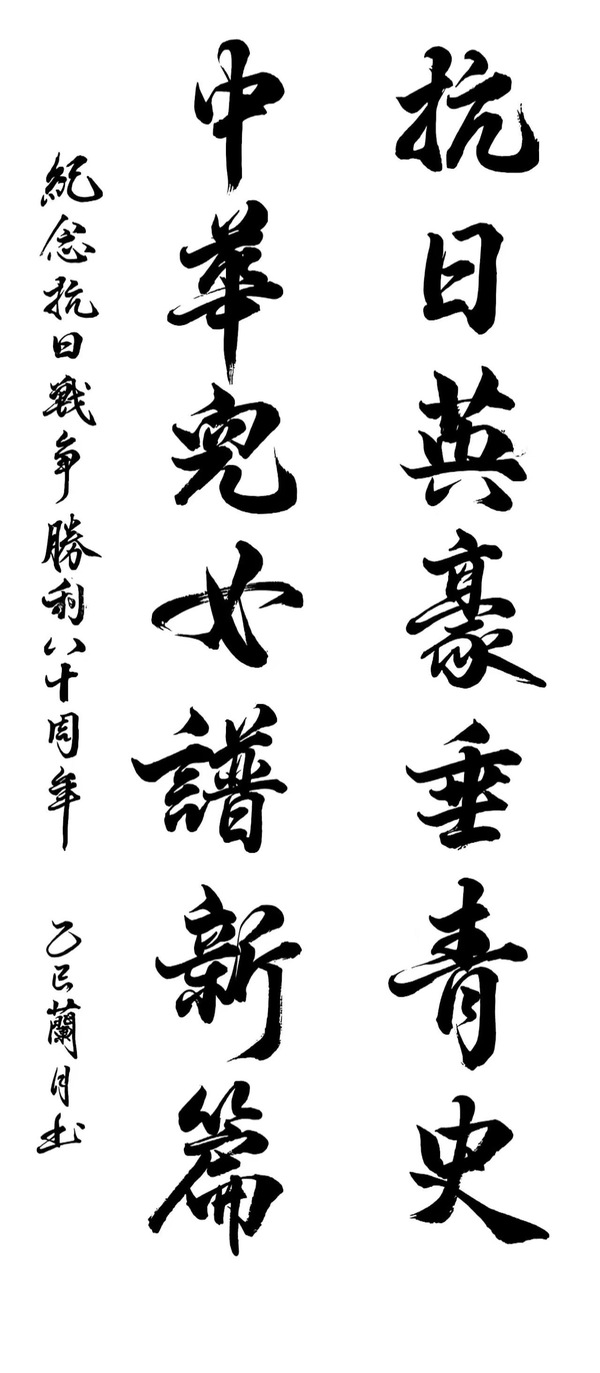 抗日英豪垂青史
中華兒女譜新篇
紀念抗日戰争勝利八十周年 乙巳蘭月书